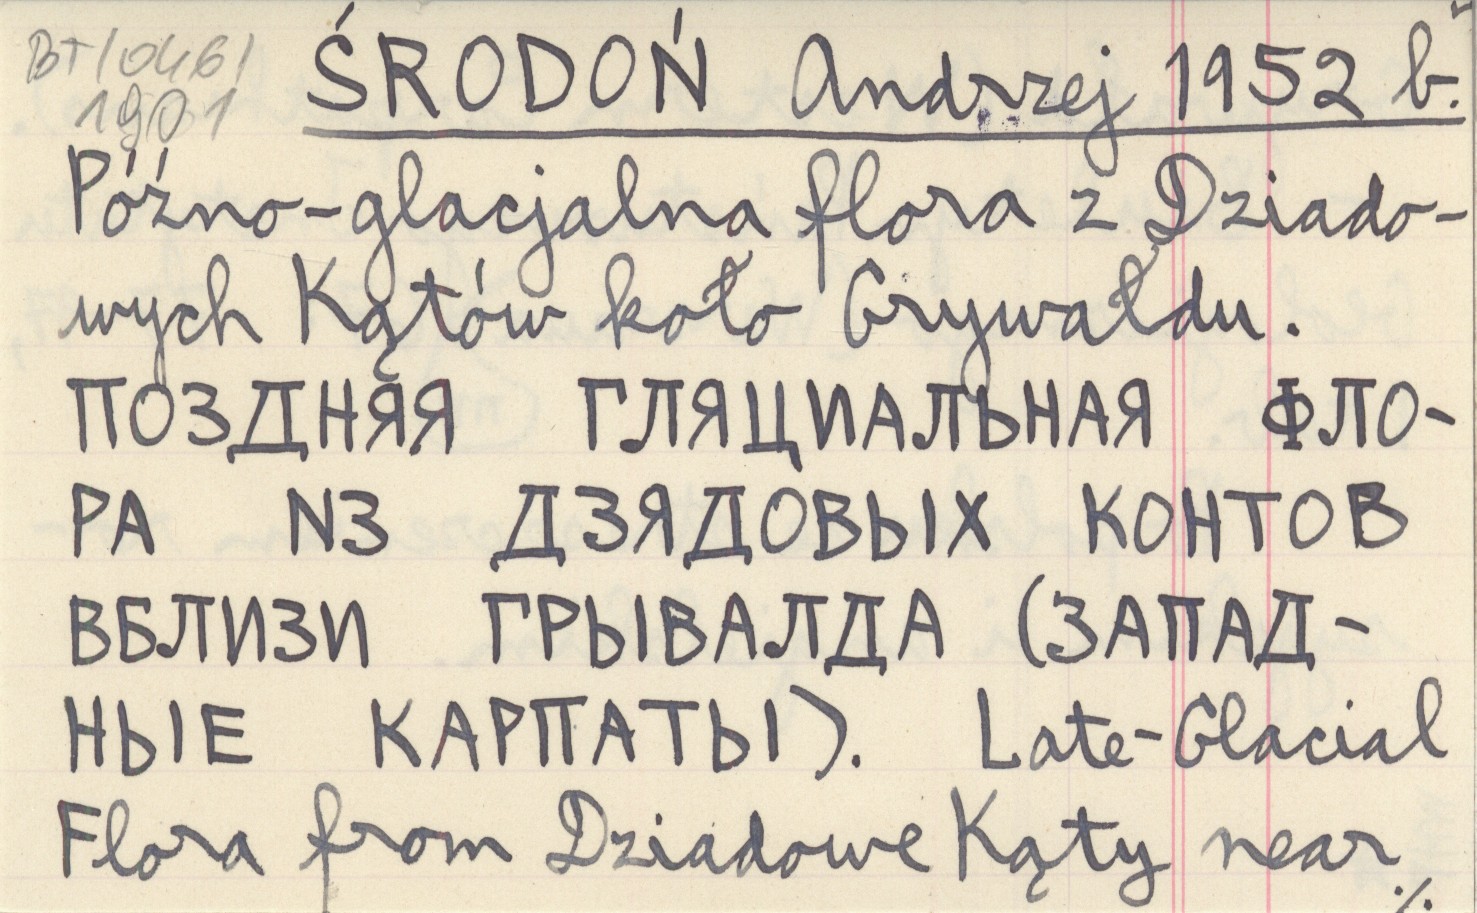 BT/0461
1901
ŚRODOŃ Andrzej 1952 b.
Późno-glacjalna flora z Dziado-
wych Kątów koło Grywałdu.
ПОЗДНЯЯ ГЛЯЦИАЛЬНАЯ ФЛО-
РА ИЗ ДЗЯДОВЫХ КОНТОВ
ВБЛИЗИ ГРЫВАЛДА (ЗАПАД-
НЫЕ КАРПАТЫ). Late-Glacial
Flora from Dziadowe Kąty near
./.